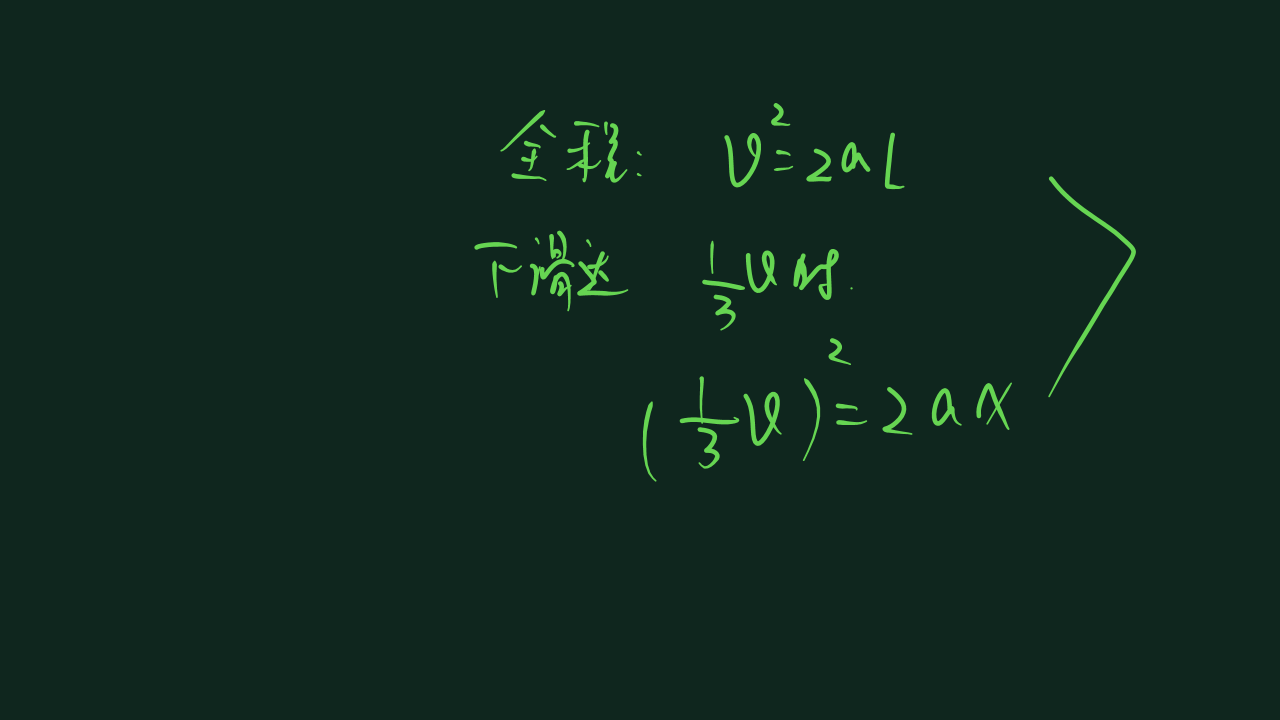 全程: v²=2aL
下滑达 1/3 v 时.
(1/3 v)²=2ax